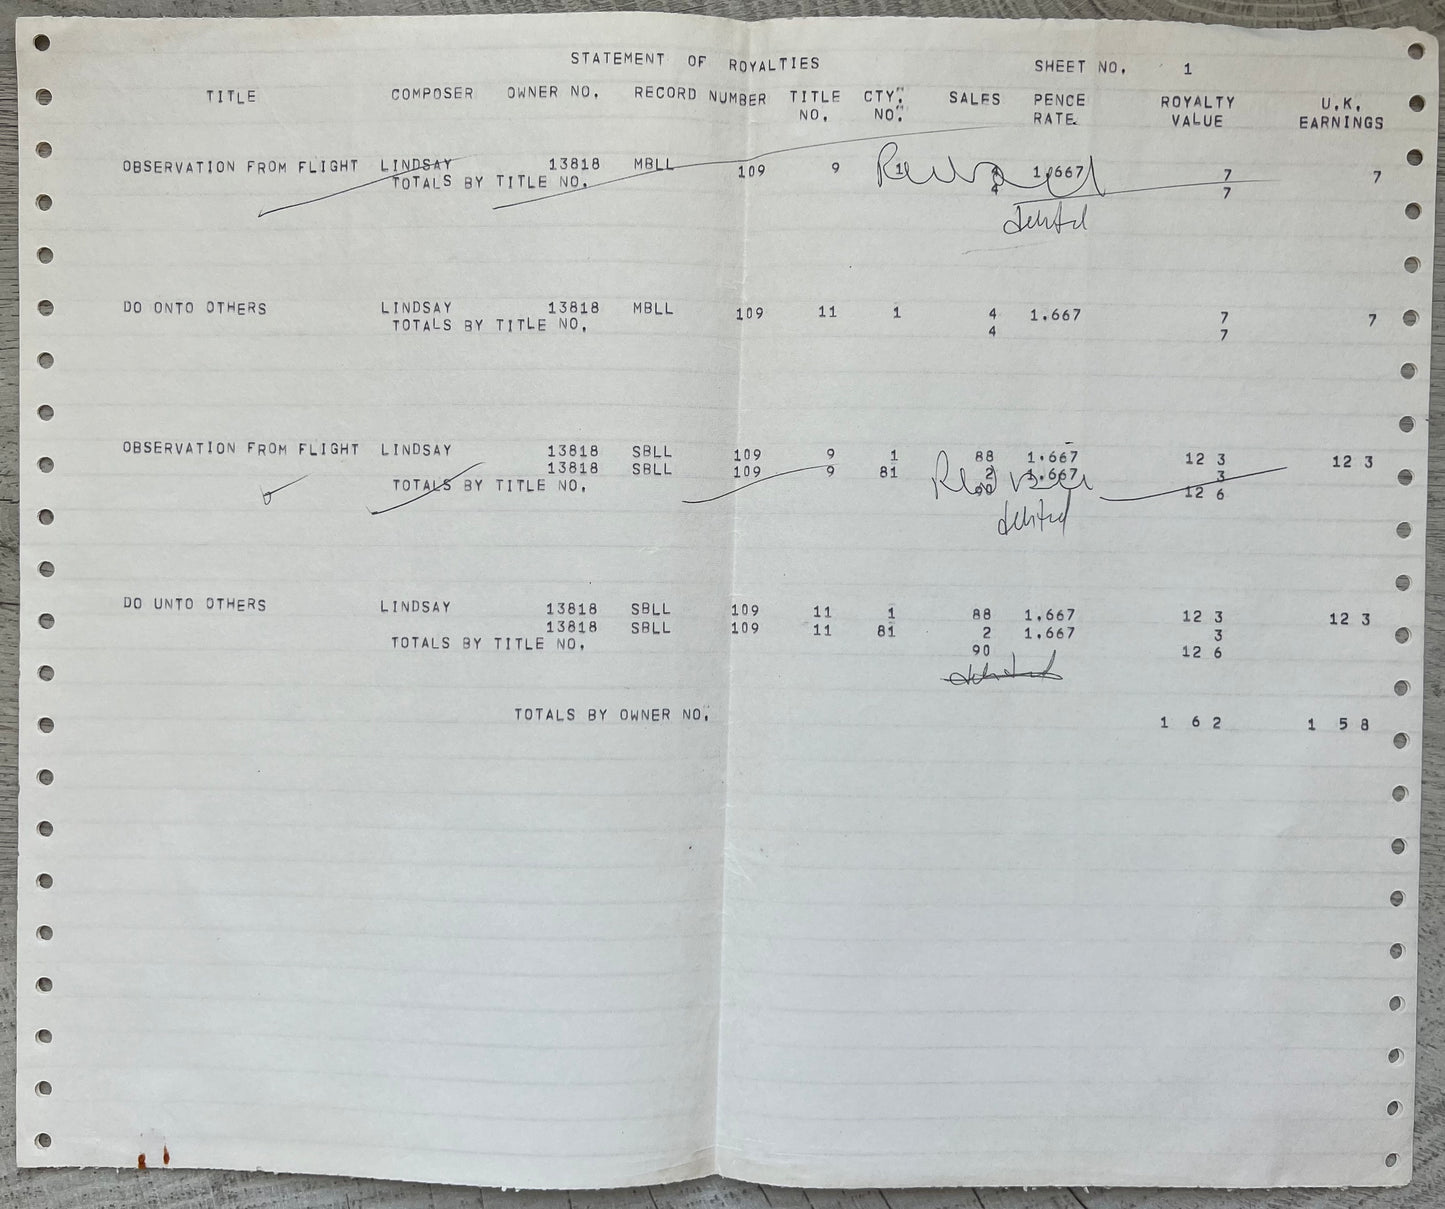 STATEMENT OF ROYALTIES SHEET NO. 1
TITLE COMPOSER OWNER NO. RECORD NUMBER TITLE NO. CTY. NO. SALES PENCE RATE ROYALTY VALUE U.K. EARNINGS
OBSERVATION FROM FLIGHT LINDSAY 13818 MBLL 109 9 1 4 1.667 7 7
TOTALS BY TITLE NO. 4 7
debited
DO ONTO OTHERS LINDSAY 13818 MBLL 109 11 1 4 1.667 7 7
TOTALS BY TITLE NO. 4 7
OBSERVATION FROM FLIGHT LINDSAY 13818 SBLL 109 9 1 88 1.667 12 3 12 3
13818 SBLL 109 9 81 2 1.667 3
TOTALS BY TITLE NO. 12 6
debited
DO UNTO OTHERS LINDSAY 13818 SBLL 109 11 1 88 1.667 12 3 12 3
13818 SBLL 109 11 81 2 1.667 3
TOTALS BY TITLE NO. 90 12 6
TOTALS BY OWNER NO. 1 6 2 1 5 8